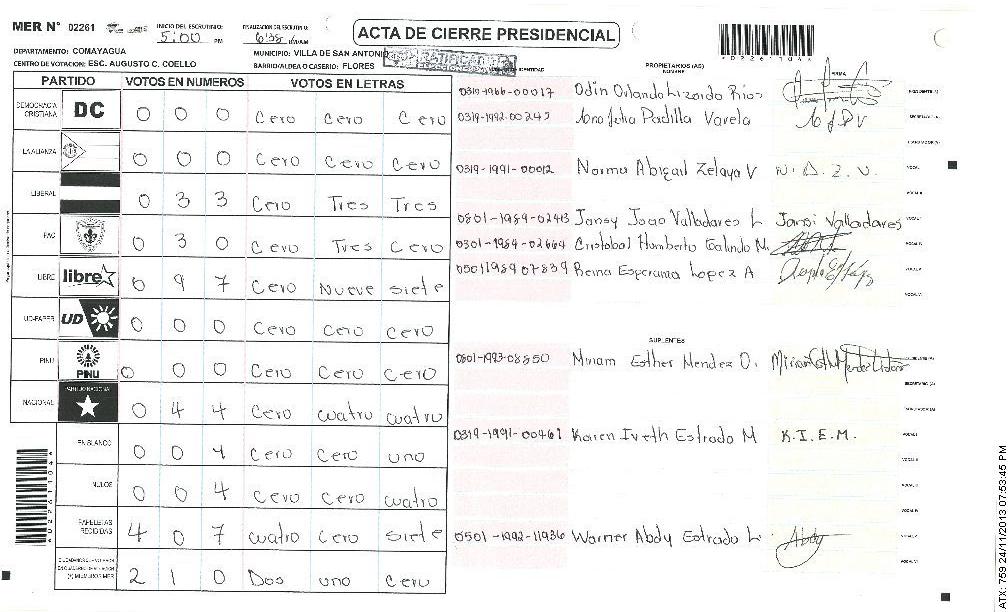 MER N° 02261 INICIO DEL ESCRUTINIO: 5:00 PM FINALIZACION DEL ESCRUTINIO: 6:38
ACTA DE CIERRE PRESIDENCIAL
*02261104*
DEPARTAMENTO: COMAYAGUA MUNICIPIO: VILLA DE SAN ANTONIO
CENTRO DE VOTACION: ESC. AUGUSTO C. COELLO BARRIO/ALDEA O CASERIO: FLORES
PARTIDO VOTOS EN NUMEROS VOTOS EN LETRAS
DEMOCRACIA CRISTIANA DC 0 0 0 Cero Cero Cero
LA ALIANZA 0 0 0 Cero Cero Cero
LIBERAL 0 3 3 Cero Tres Tres
PAC 0 3 0 Cero Tres Cero
LIBRE libre 0 9 7 Cero Nueve siete
UD-FAPER UD 0 0 0 Cero Cero Cero
PINU PNU 0 0 0 Cero Cero Cero
NACIONAL PARTIDO NACIONAL 0 4 4 Cero cuatro cuatro
EN BLANCO 0 0 1 Cero Cero uno
NULOS 0 0 4 Cero Cero cuatro
PAPELETAS RECIBIDAS 4 0 7 cuatro Cero siete
(+) MIEMBROS MER 2 1 0 Dos uno Cero
PROPIETARIOS (AS)
NOMBRE FIRMA
0319-1966-00017 Odin Orlando Lizardo Rios
0319-1992-00245 Padilla Varela
0319-1991-00012 Norma Abigail Zelaya V N. A. Z. V.
Joao Valladares L Valladares
0301-1984-02664 Cristobal Humberto Galindo M.
0501198907839 Reina Esperanza Lopez A
SUPLENTES
0801-1993-08850 Miriam Esther Mendez O.
0319-1991-00461 Karen Iveth Estrada M K.I.E.M.
0501-1992-11936 Warner Abdy Estrada L. Abdy
ATX: 759 24/11/2013 07:53:45 PM